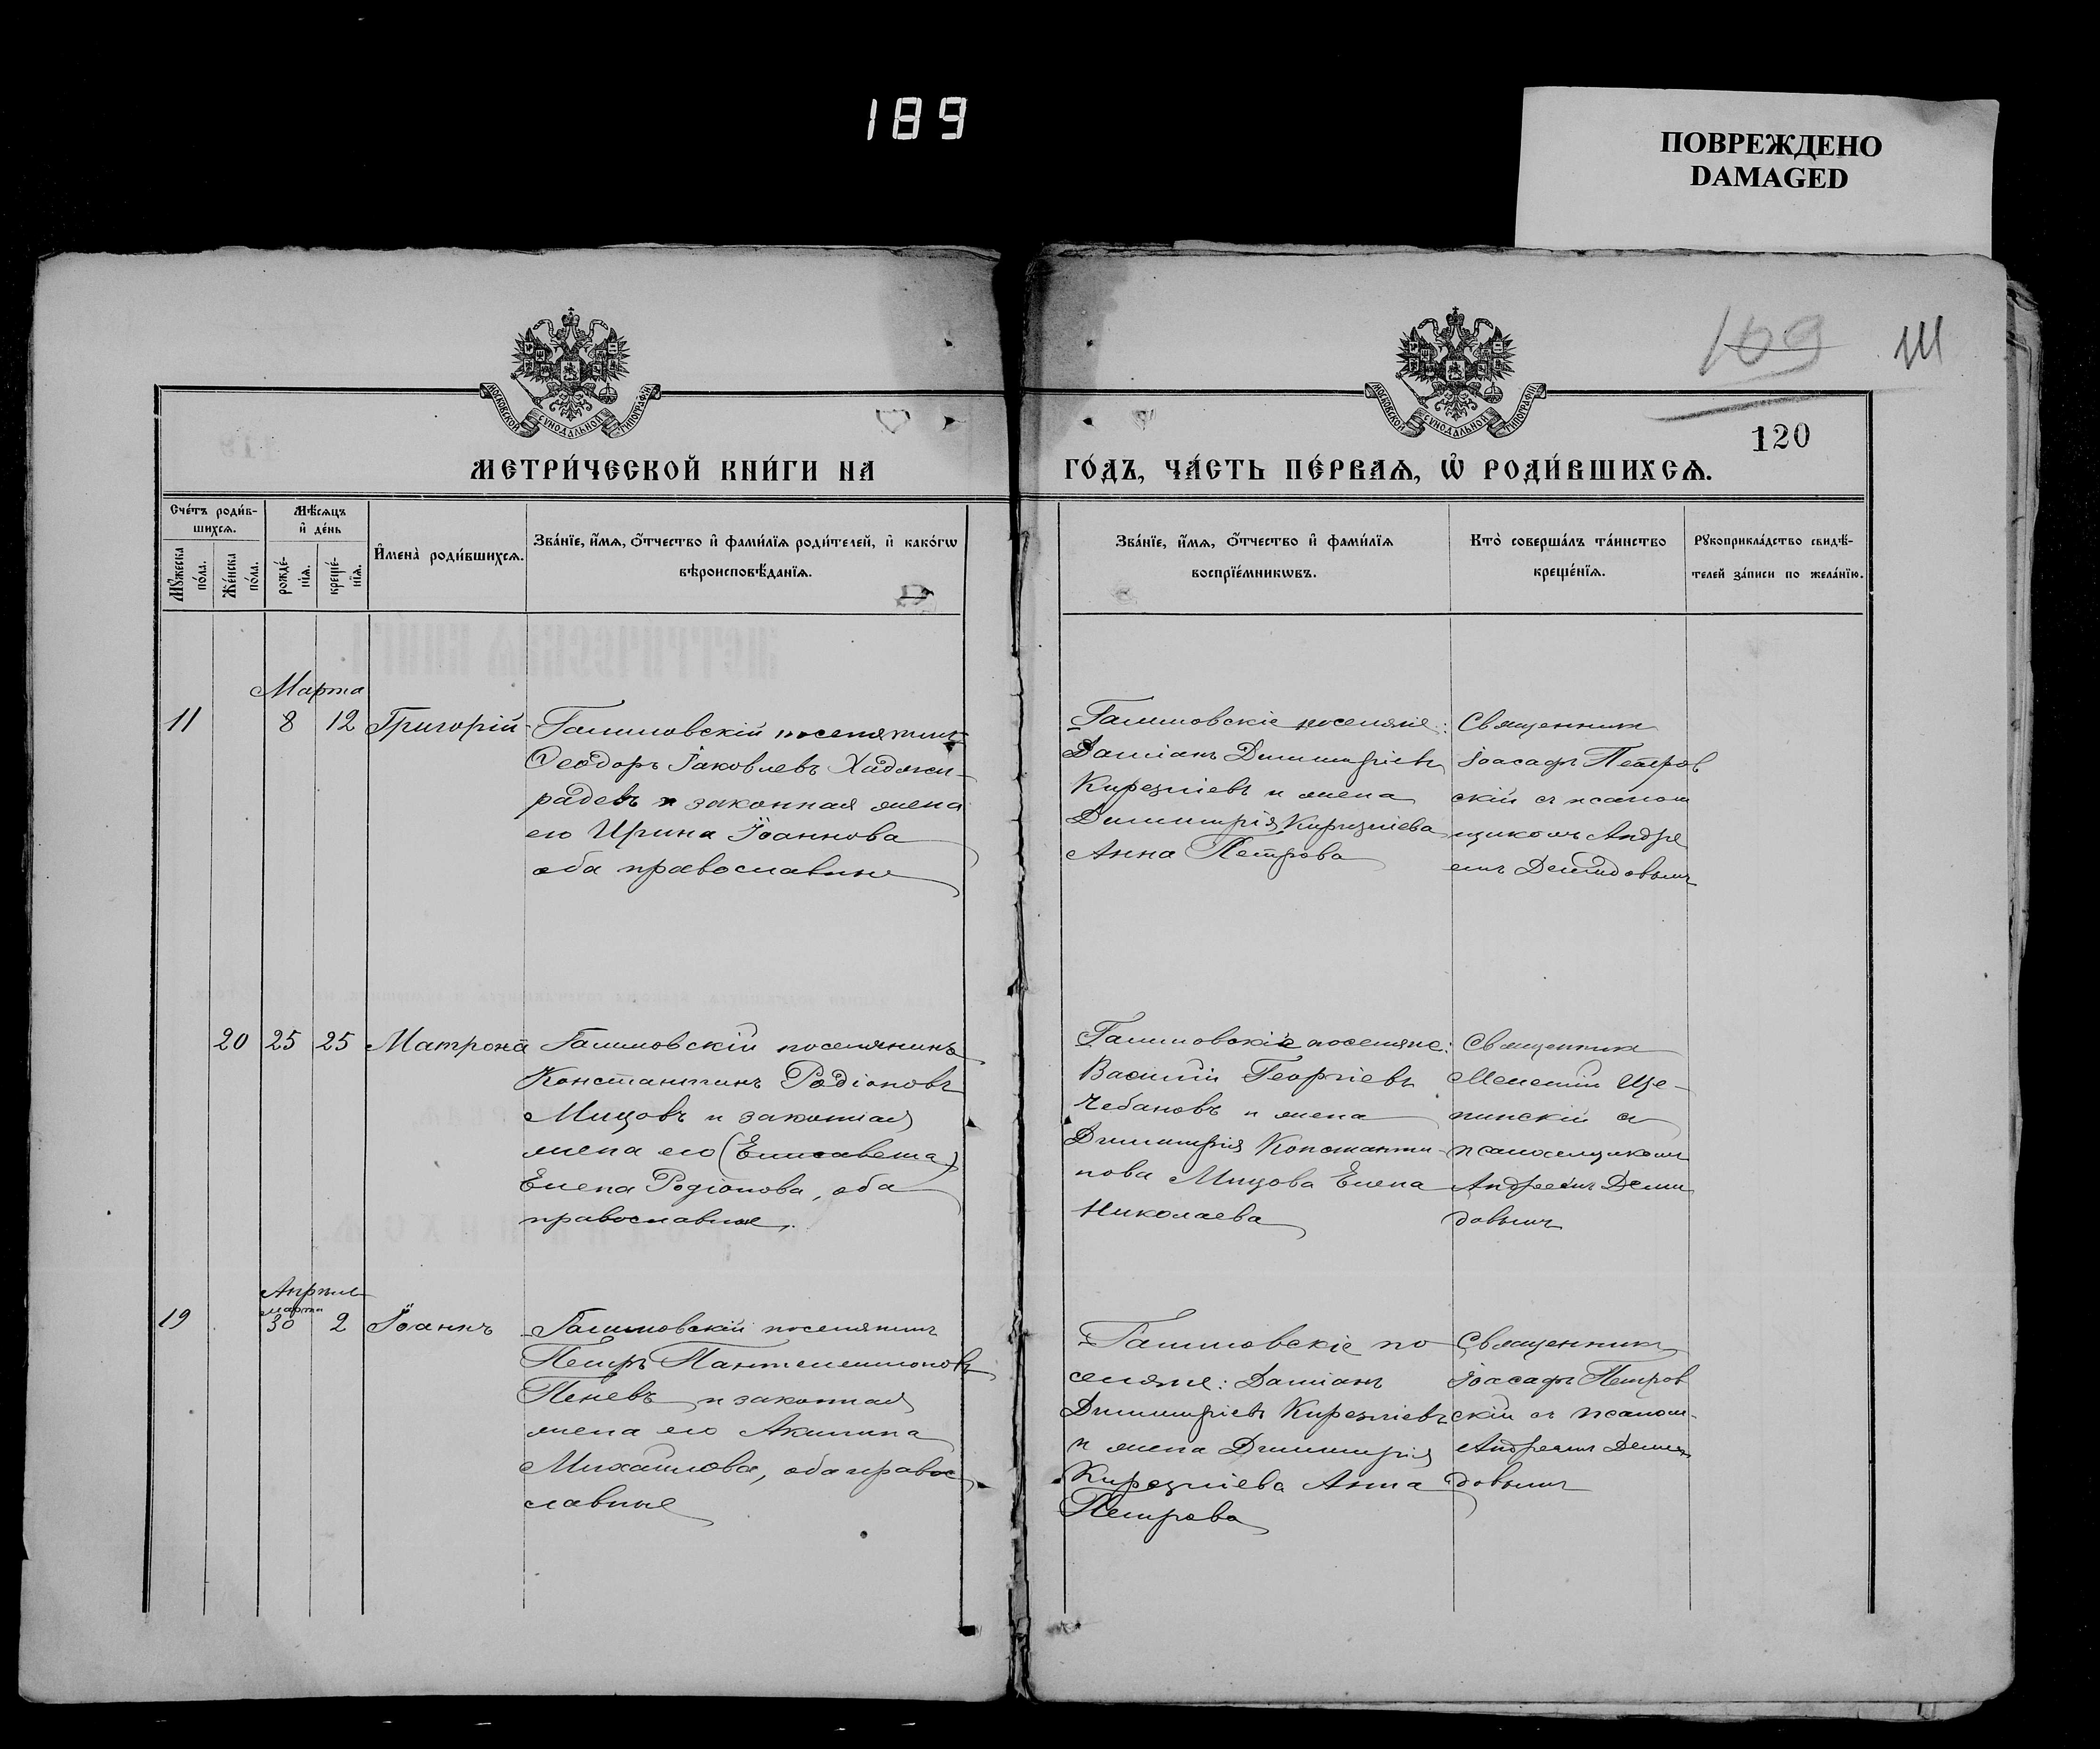 189
ПОВРЕЖДЕНО
DAMAGED
109
111
МОСКОВСКОЙ СѴНОДАЛЬНОЙ ТИПОГРАФІИ
МОСКОВСКОЙ СѴНОДАЛЬНОЙ ТИПОГРАФІИ
120
МЕТРИ́ЧЕСКОЙ КНИ́ГИ НА
ГО́ДЪ, ЧА́СТЬ ПЕ́РВАѦ, Ѡ҆ РОДИ́ВШИХСѦ.
Сче́тъ роди́в-
шихсѧ.
Мѣ́сѧцъ
и҆ де́нь
Мꙋ́жеска
по́ла.
Же́нска
по́ла.
рожде́-
нїѧ.
креще́-
нїѧ.
И҆мена̀ роди́вшихсѧ.
Зва́нїе, и҆́мѧ, ѻ҆́тчество и҆ фами́лїѧ роди́телей, и҆ како́гѡ
вѣроисповѣ́данїѧ.
Зва́нїе, и҆́мѧ, ѻ҆́тчество и҆ фами́лїѧ
воспрїе́мникѡвъ.
Кто̀ соверша́лъ та́инство
креще́нїѧ.
Рꙋкоприкла́дство свидѣ́-
телей за́писи по жела́нїю.
Марта
11 8 12 Григорій
Галиловскій поселянинъ
Ѳеодоръ Іаковлевъ Хаджи-
радевъ и законная жена
его Ирина Іоаннова
оба православные
Галиловскіе поселяне:
Даміанъ Димитріевъ
Кирезлiевъ и жена
Димитрія Кирезлiева
Анна Петрова
Священникъ
Іоасафъ Петров
скій съ псалом
щикомъ Андре
емъ Демидовымъ
20 25 25 Матрона
Галиловскій поселянинъ
Константинъ Родіоновъ
Мицовъ и законная
жена его (Елисавета)
Елена Родіонова, оба
православные.
Галиловскіе поселяне:
Василій Георгіевъ
Чебановъ и жена
Димитрія Константи-
нова Мицова Елена
Николаева
Священникъ
Мелетій Ще-
пинскій съ
псаломщикомъ
Андреемъ Деми
довымъ
Апрѣль
марта
19 30 2 Іоаннъ
Галиловскій поселянинъ
Петръ Пантелеимоновъ
Пеневъ и законная
жена его Акилина
Михайлова, оба право
славные
Галиловскіе по
селяне: Даміанъ
Димитріевъ Кирезлiевъ
и жена Димитрія
Кирезлiева Анна
Петрова
Священникъ
Іоасафъ Петров
скій съ псалом.
Андреемъ Деми
довымъ